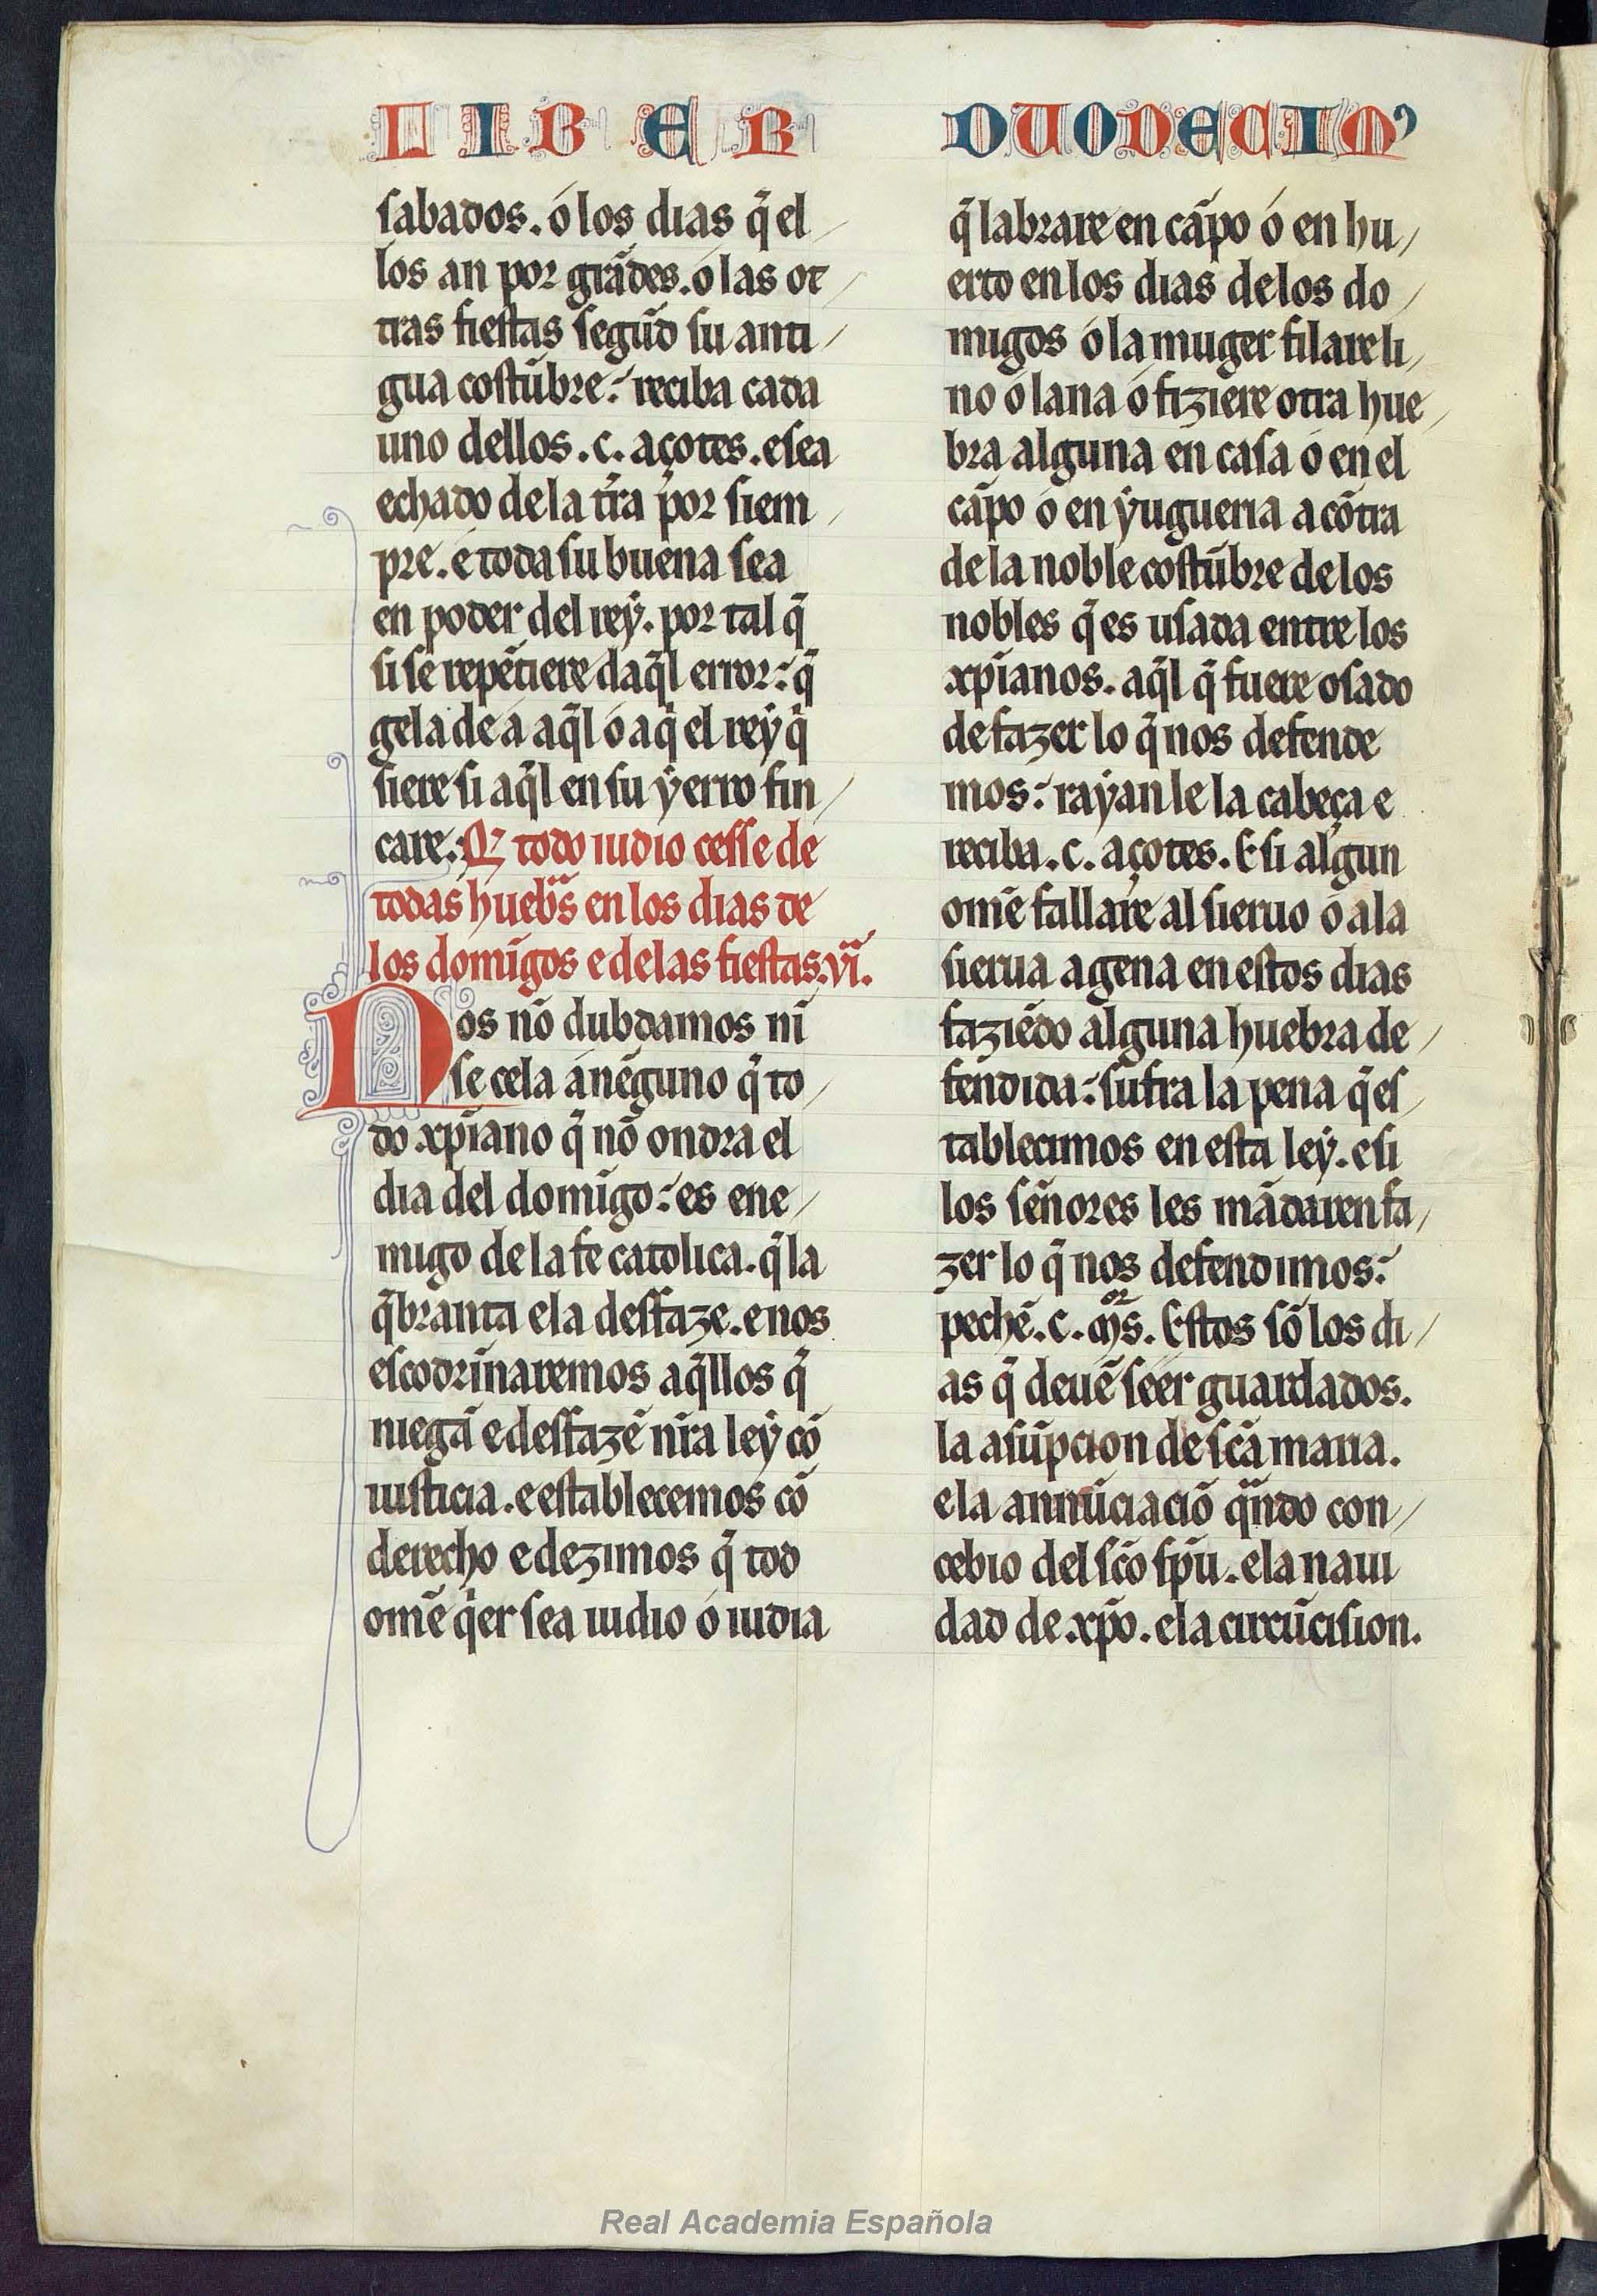 LIBER DUODECIMꝰ
sabados. ó los dias q̃ el
los an por grãdes. ó las ot
tras fiestas segũd su anti
gua costũbre: reciba cada
uno dellos .c. açotes. e sea
echado de la tr̃ra por siem
pre. é toda su buena sea
en poder del reẏ. por tal q̃
si se repẽtiere daq̃l error: q̃
gela de á aq̃l ó a q̃ el reẏ q̃
siere si aq̃l en su ẏerro fin
care. Q̃ todo iudio cesse de
todas huebᵃs en los dias de
los domĩgos e de las fiestas. vı̃.
Nos nõ dubdamos nĩ
se cela á nẽguno q̃ to
do xp̃iano q̃ nõ ondra el
dia del domĩgo: es ene
migo de la fe catolica. q̃ la
q̃branta e la desfaze. e nos
escodrĩnaremos aq̃llos q̃
niegã e desfazẽ nr̃a leẏ cõ
iusticia. e establecemos cõ
derecho e dezimos q̃ tod
omẽ q̃er sea iudio ó iudia
q̃ labrare en cãpo ó en hu
erto en los dias de los do
migos ó la muger filare li
no ó lana ó fiziere otra hue
bra alguna en casa ó en el
cãpo ó en ẏugueria a cõtra
de la noble costũbre de los
nobles q̃ es usada entre los
xp̃ianos. aq̃l q̃ fuere osado
de fazer lo q̃ nos defende
mos: raẏan le la cabeça e
reciba .c. açotes. E si algun
omẽ fallare al sieruo ó a la
sierua agena en estos dias
faziẽdo alguna huebra de
fendida: sufra la pena q̃ es
tablecimos en esta leẏ. e si
los señores les mãdaren fa
zer lo q̃ nos defendimos:
pechẽ .c. mᵒʳs. Estos sõ los di
as q̃ deuẽ seer guardados.
la asũpcion de sc̃a maria.
e la annũciaciõ qᵃndo con
cebio del sc̃o sp̃u. e la naui
dad de xp̃o. e la circũcision.
Real Academia Española